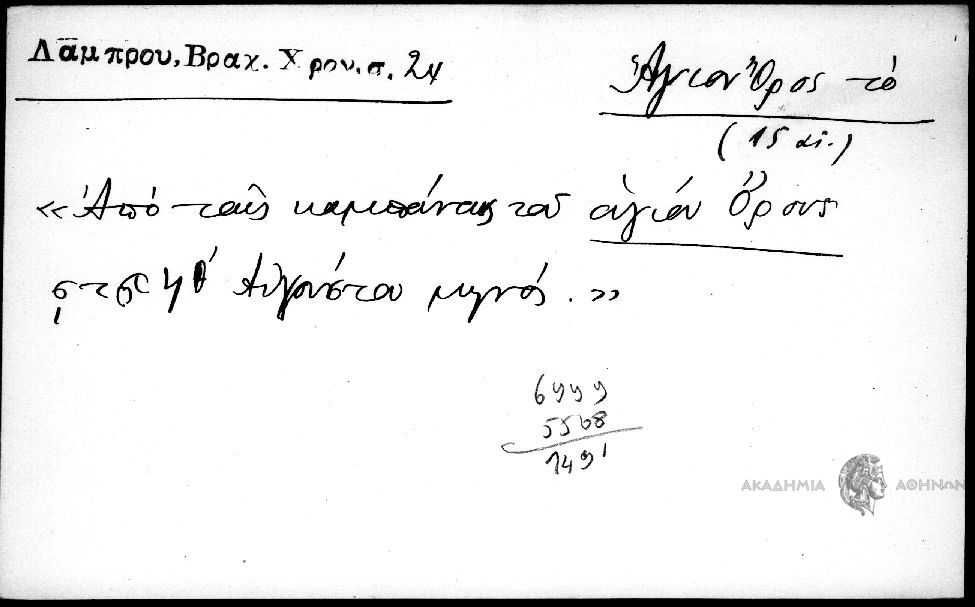 Λάμπρου, Βραχ. Χρον. σ. 24
Ἅγιον Ὄρος τό
(15 αἰ.)
«Ἀπό ταῖς καμπάναις τοῦ ἁγίου Ὄρους
Αὐγούστου μηνός.»
6999
5508
1491
ΑΚΑΔΗΜΙΑ ΑΘΗΝΩΝ